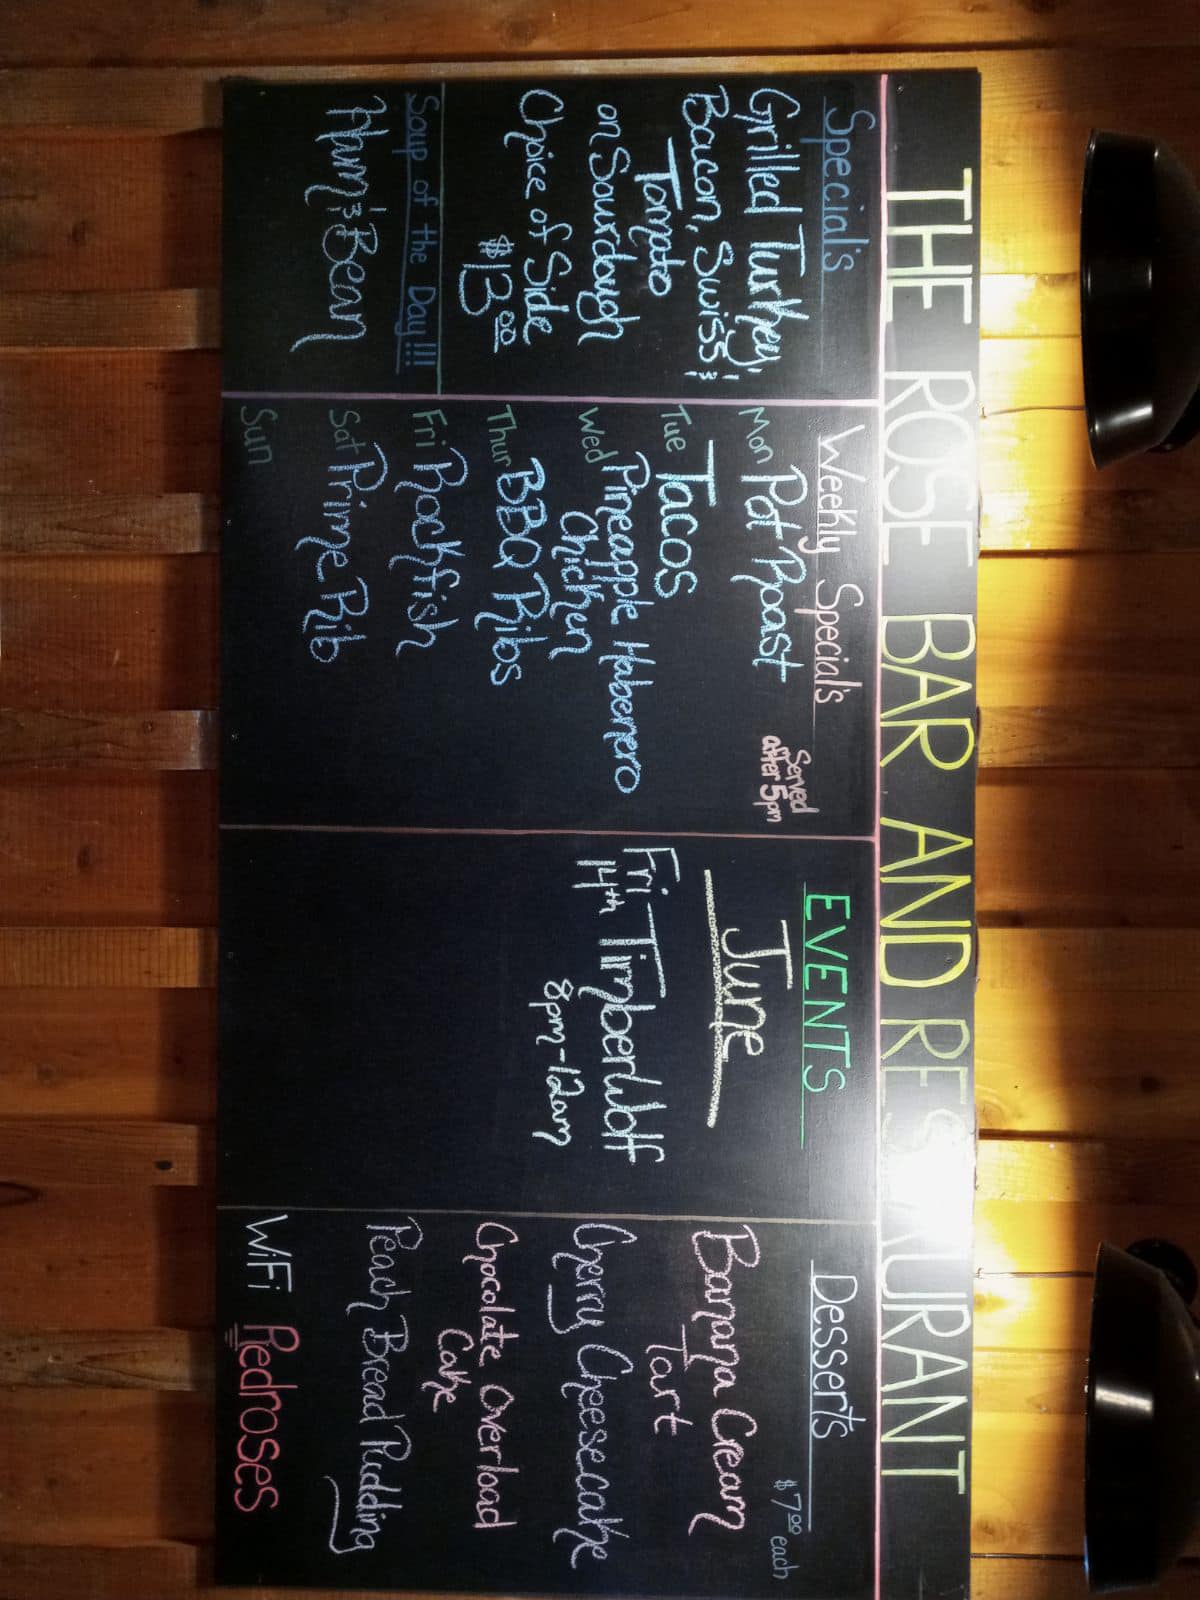 THE ROSE BAR AND RESTAURANT
Special's
Grilled Turkey,
Bacon, Swiss &
Tomato
on Sourdough
Choice of Side
$13.00
Soup of the Day!!!
Ham & Bean
Weekly Special's
Served
after 5pm
Mon Pot Roast
Tue Tacos
Wed Pineapple Habenero
Chicken
Thur BBQ Ribs
Fri Rockfish
Sat Prime Rib
Sun
EVENTS
June
Fri Timberwolf
14th
8pm-12am
Desserts
$7.00 each
Banana Cream
Tart
Cherry Cheesecake
Chocolate Overload
Cake
Peach Bread Pudding
WiFi Redroses